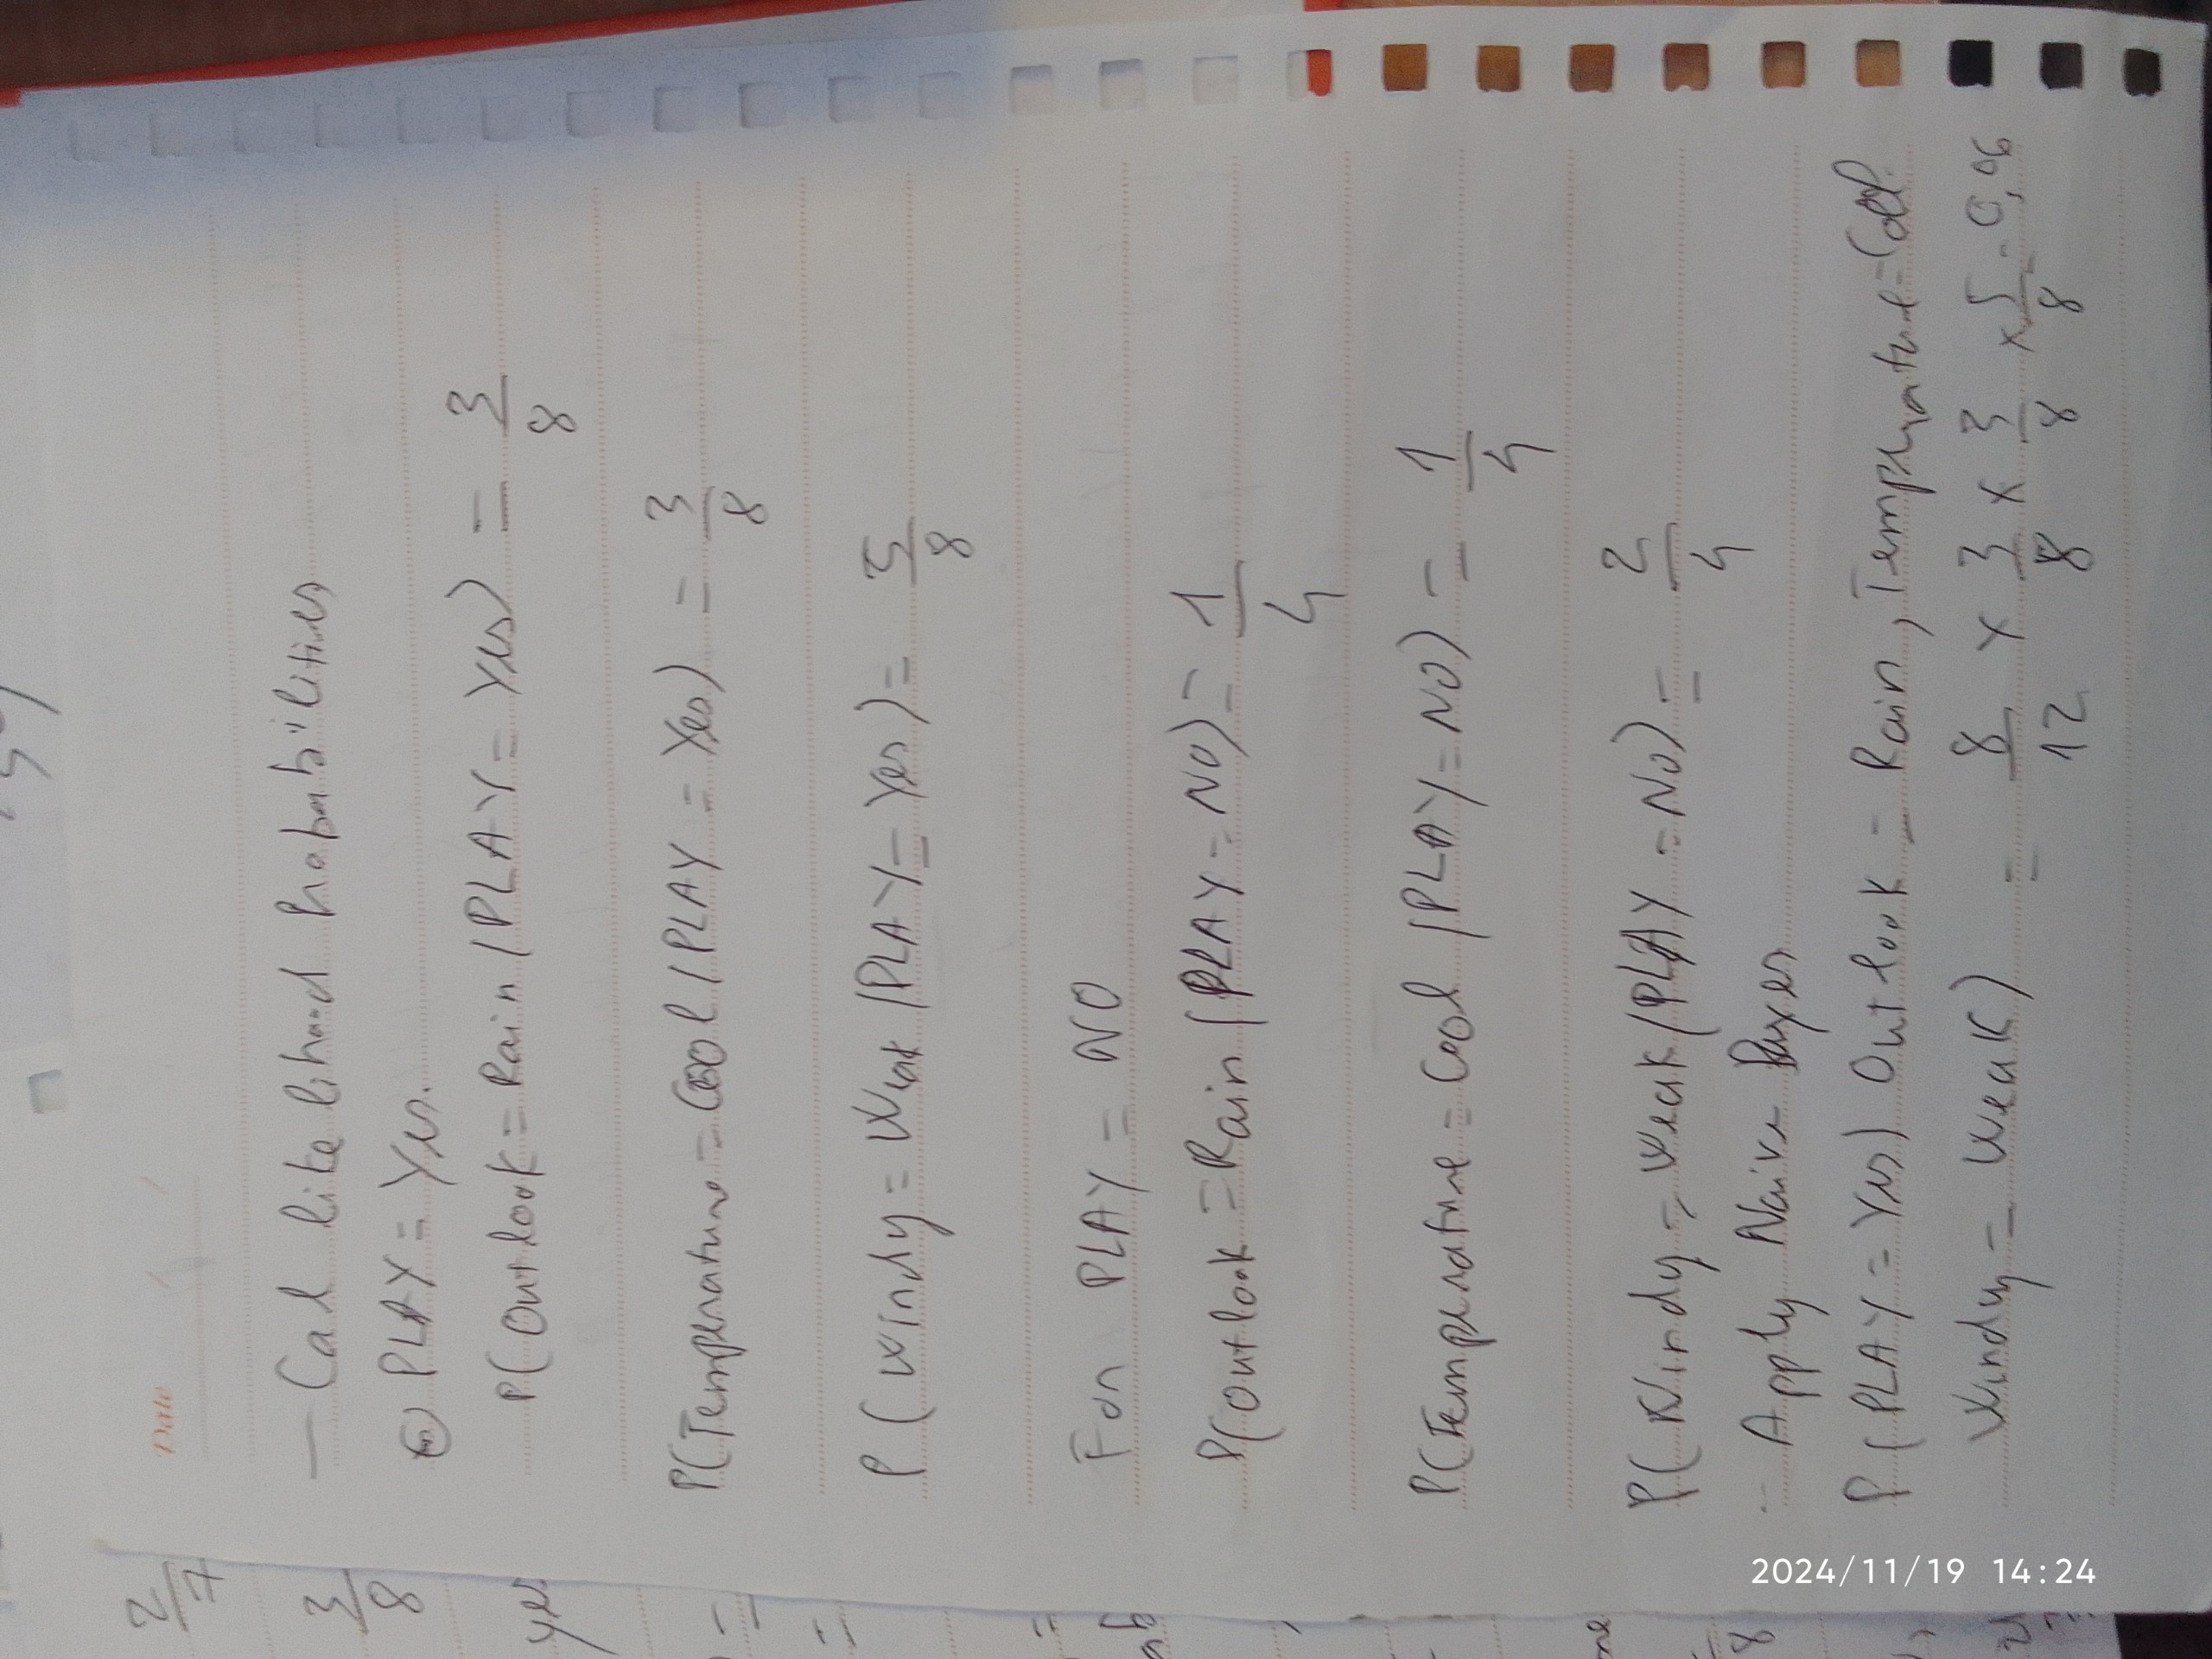 Date
— Cal likelihood Probabilities
PLAY = Yes.
P(Outlook = Rain / PLAY = Yes) = 3/8
P(Temperature = Cool / PLAY = Yes) = 3/8
P (Windy = Weak / PLAY = Yes) = 5/8
For PLAY = NO
P(Outlook = Rain / PLAY = NO) = 1/4
P(Temperature = Cool / PLAY = NO) = 1/4
P(Windy = Weak / PLAY = NO) = 2/4
- Apply Naive Bayes
P (PLAY = Yes) Outlook = Rain, Temperature = Cool
Windy = Weak) = 8/12 x 3/8 x 3/8 x 5/8 = 0,06
2/7
3/8
yes
8
2024/11/19 14:24